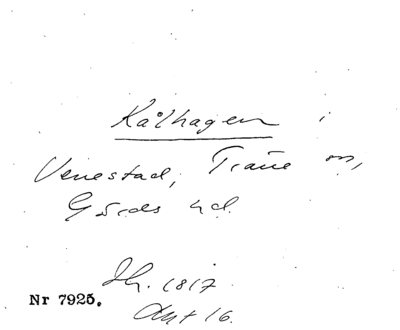 Kålhagen i
Venestad, Träne sn,
Gärds hd.
Jb. 1817
Akt 16.
Nr 7925.